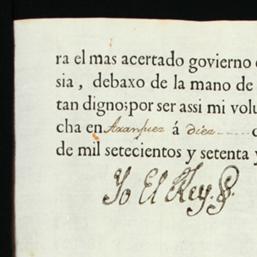 ra el mas acertado govierno
sia, debaxo de la mano de
tan digno; por ser assi mi volu
cha en Aranjuez á diez
de mil setecientos y setenta y
Yo El Rey.